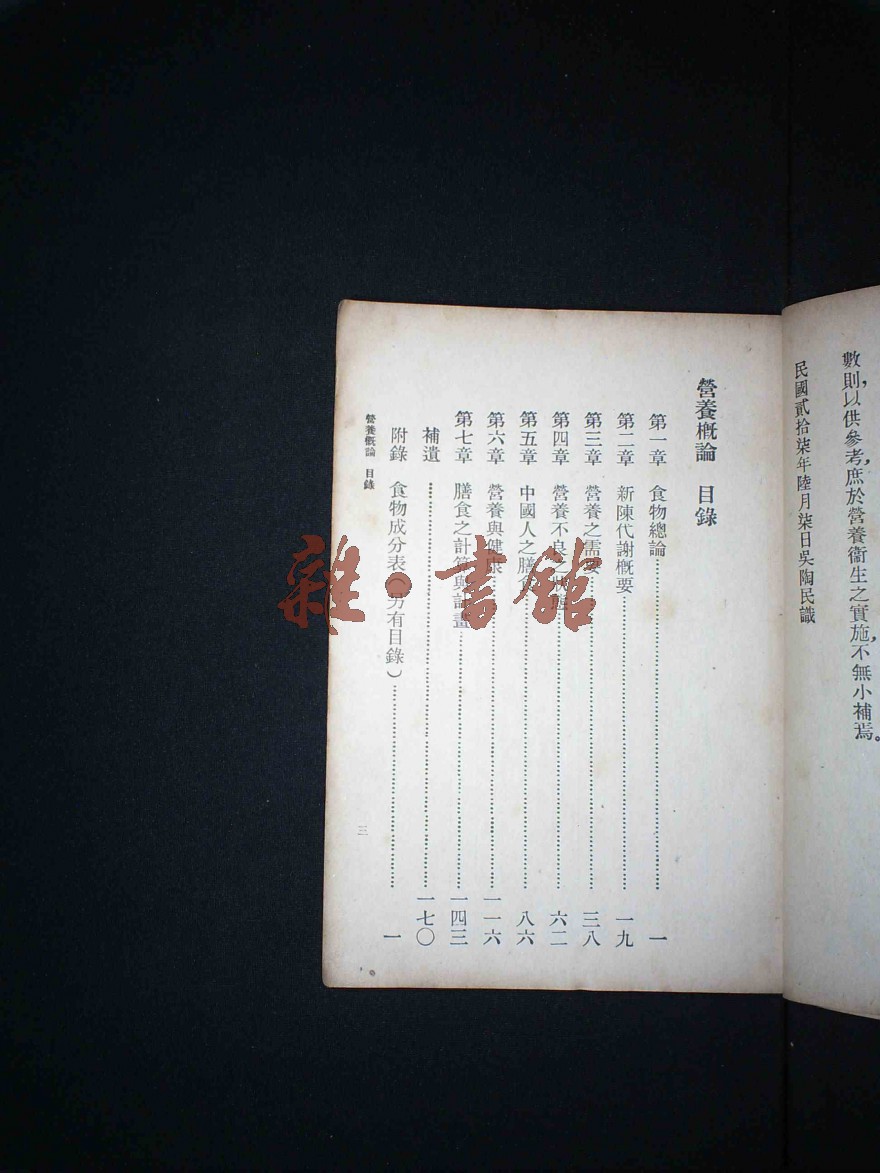 數則,以供參考,庶於營養衞生之實施,不無小補焉。
民國貳拾柒年陸月柒日吳陶民識
營養概論 目錄
第一章 食物總論 一
第二章 新陳代謝概要 一九
第三章 營養之需要 三八
第四章 營養不良之 六二
第五章 中國人之膳食 八六
第六章 營養與健康 一一六
第七章 膳食之計算與計畫 一四三
補遺 一七〇
附錄 食物成分表(另有目錄) 一
營養概論 目錄
三
雜·書館